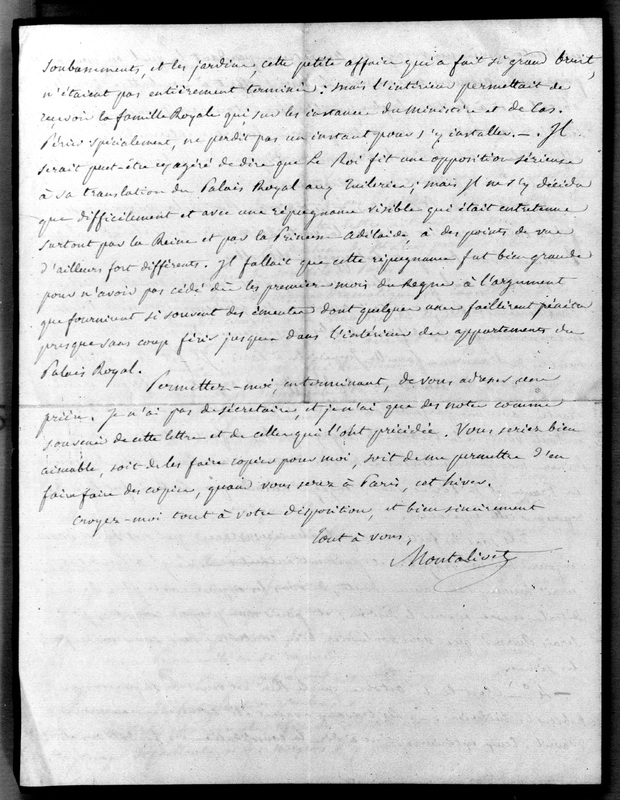 Soubassements, et les jardins, cette petite affaire qui a fait si grand bruit,
n'étaient pas entièrement terminés ; mais l'intérieur permettait de
recevoir la famille Royale qui, sur les instances du Ministère et de Cas.
Périer spécialement, ne perdit pas un instant pour s'y installer. — . Il
serait peut-être exagéré de dire que Le Roi fit une opposition sérieuse
à sa translation du Palais Royal aux Tuileries ; mais il ne s'y décida
que difficilement et avec une répugnance visible qui était entretenue
surtout par la Reine et par la Princesse Adélaïde, à des points de vue
d'ailleurs fort différents. Il fallait que cette répugnance fut bien grande
pour n'avoir pas cédé dès les premiers mois du Règne à l'argument
que fournirent si souvent des émeutes dont quelques unes faillirent pénétrer
presque sans coup férir jusques dans l'intérieur des appartements du
Palais Royal.
Permettez-moi, en terminant, de vous adresser une
prière. Je n'ai pas de secrétaire, et je n'ai que des notes comme
souvenir de cette lettre et de celles qui l'ont précédée. Vous seriez bien
aimable, soit de les faire copier pour moi, soit de me permettre d'en
faire faire des copies, quand vous serez à Paris, cet hiver.
Croyez-moi tout à votre disposition, et bien sincèrement
tout à vous,
Montalivet